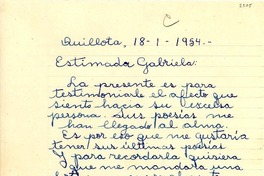 C
Quillota, 18-1-1954.-
Estimada Gabriela:
La presente es para
testimoniarle el afecto que
siento hacia su excelsa
persona. Sus poesías me
han llegado al alma.
Es por eso que me gustaría
tener sus últimas poesías
y para recordarla quisiera
que me mandara una